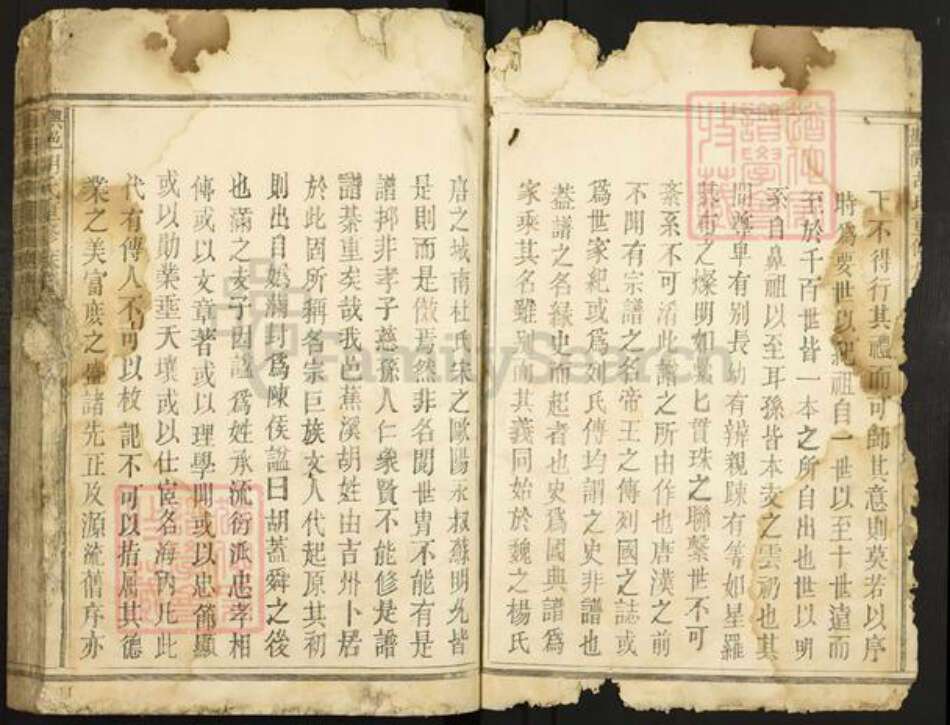 下不得行其禮而可師其意則莫若以序
時爲要世以紀祖自一世以至十世遠而
至於千百世皆一本之所自出也世以明
系自鼻祖以至耳孫皆本支之雲礽也其
間尊卑有别長幼有辨親踈有等如星羅
棊布之燦明如絲匕貫珠之聯繫世不可
紊系不可淆此譜之所由作也唐漢之前
不聞有宗譜之名帝王之傳列國之誌或
爲世家紀或爲列氏傳均謂之史非譜也
葢譜之名緑史而起者也史爲國典譜爲
家乘其名雖别而其義同始於魏之楊氏
唐之城南杜氏宋之歐陽永叔蘇明允皆
是則而是傚焉然非名閥世冑不能有是
譜抑非孝子慈孫人仁衆賢不能修是譜
譜綦重矣哉我邑蕉溪胡姓由吉州卜居
於此固所稱名宗巨族文人代起原其初
則出自嬀滿封爲陳侯諡曰胡蓋舜之後
也滿之支子因諡爲姓承流衍派忠孝相
傳或以文章著或以理學聞或以忠節顯
或以勛業垂天壤或以仕宦名海內凡此
代有傳人不可以枚記不可以指屈其德
業之美富庶之盛諸先正及源流舊序亦